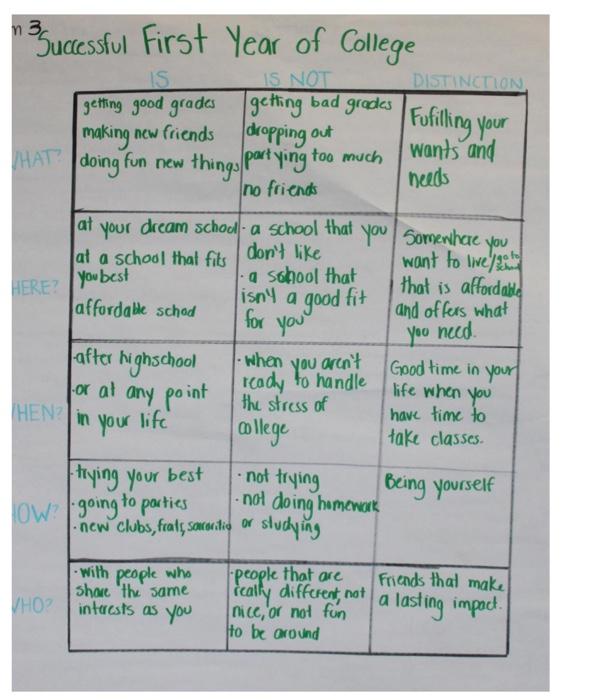 m 3
Successful First Year of College
IS IS NOT DISTINCTION
WHAT?
getting good grades
making new friends
doing fun new things
getting bad grades
dropping out
partying too much
no friends
Fufilling your
wants and
needs
HERE?
at your dream school
at a school that fits
you best
affordable school
· a school that you
don't like
· a school that
isn't a good fit
for you
Somewhere you
want to live/go to
school
that is affordable
and offers what
you need.
WHEN?
·after highschool
·or at any point
in your life
· when you aren't
ready to handle
the stress of
college
Good time in your
life when you
have time to
take classes.
HOW?
·trying your best
·going to parties
· new clubs, frats,
· not trying
· not doing homework
or studying
Being yourself
WHO?
·with people who
share the same
interests as you
·people that are
really different, not
nice, or not fun
to be around
Friends that make
a lasting impact.